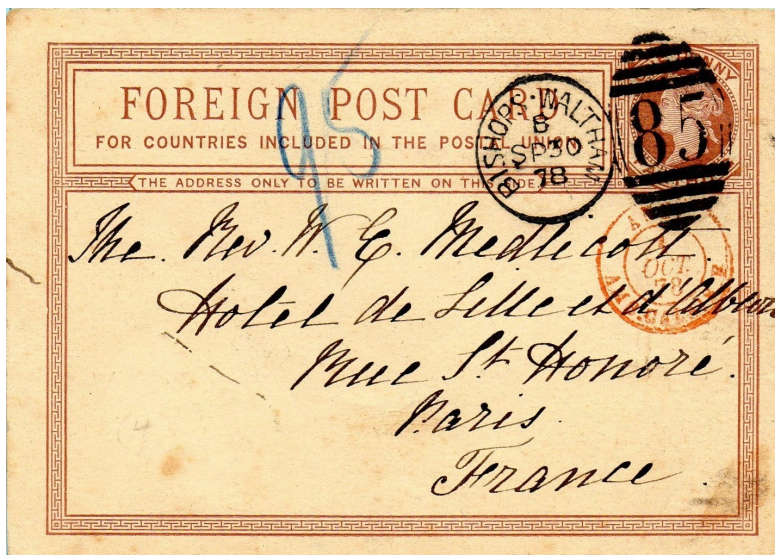 FOREIGN POST CARD
FOR COUNTRIES INCLUDED IN THE POSTAL UNION
THE ADDRESS ONLY TO BE WRITTEN ON THIS SIDE
PENNY
BISHOPS·WALTHAM
B
SP30
78
85
95
OCT.
78
The Rev. W. E. Medlicott.
Hotel de Lille et d'Albion
Rue St. Honoré.
Paris.
France.